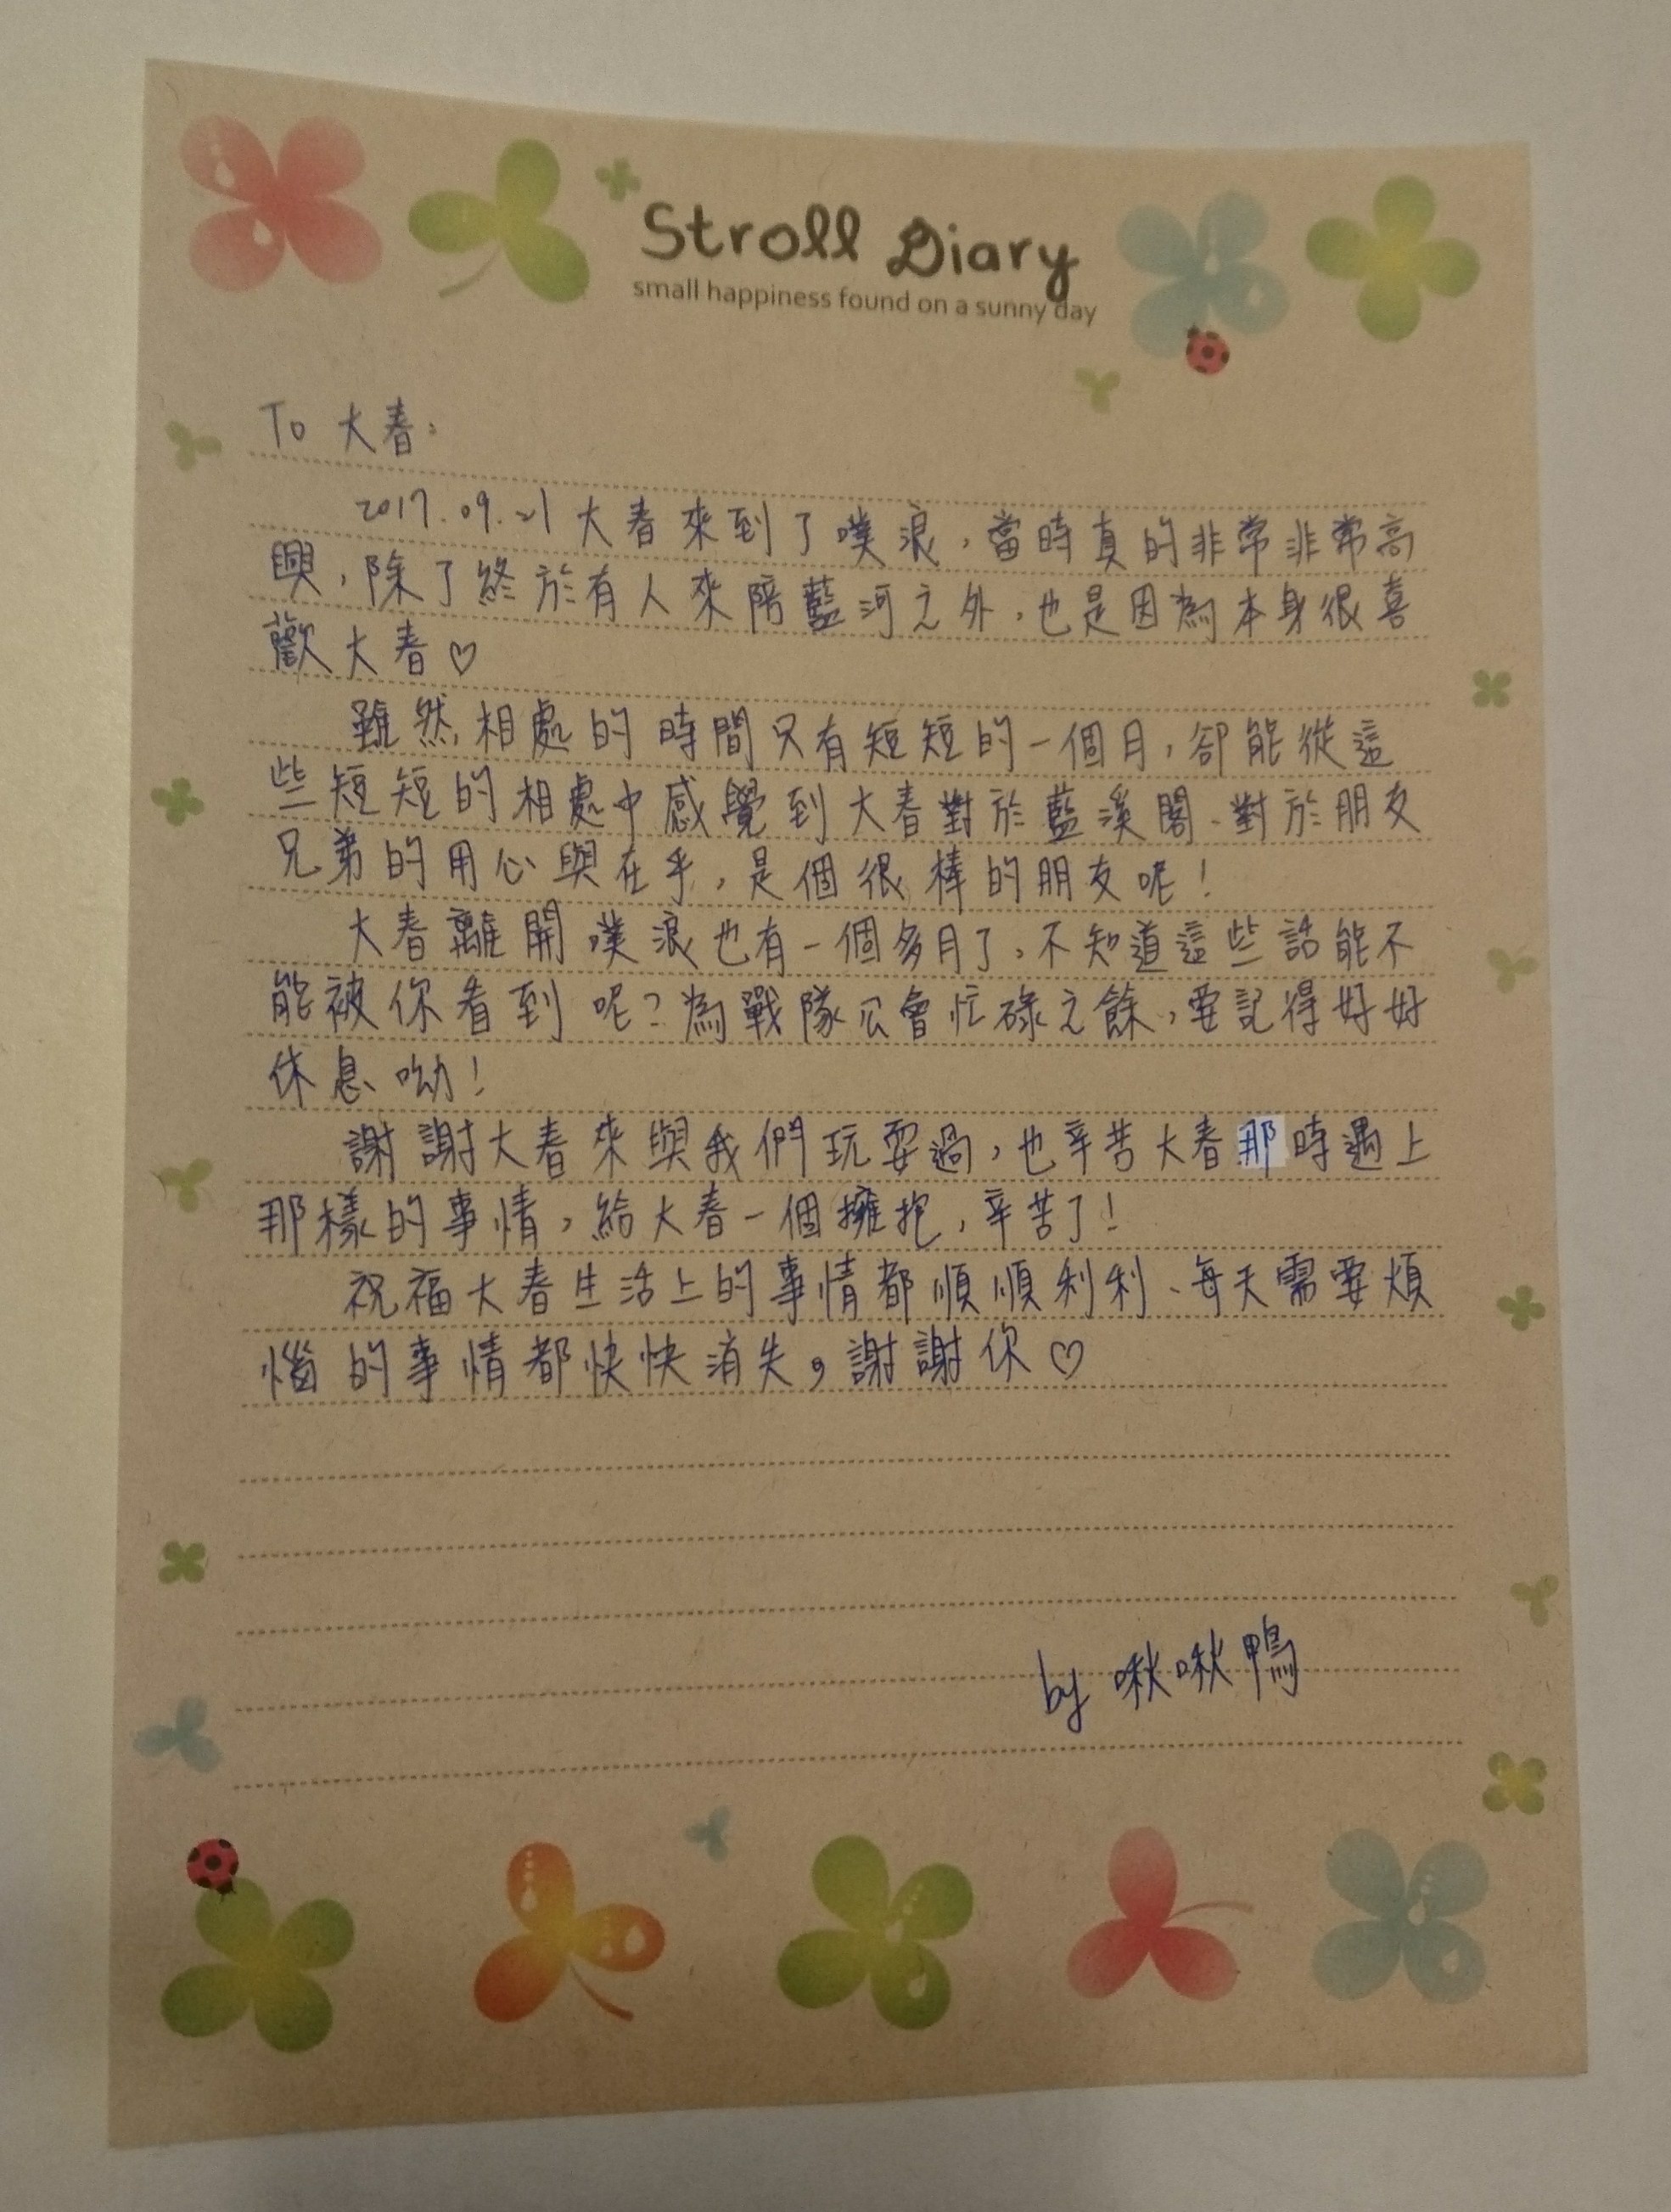 Stroll Diary
small happiness found on a sunny day
To 大春:
2017.09.21 大春來到了噗浪,當時真的非常非常高
興,除了終於有人來陪藍河之外,也是因為本身很喜
歡大春♡
雖然相處的時間只有短短的一個月,卻能從這
些短短的相處中感覺到大春對於藍溪閣、對於朋友
兄弟的用心與在乎,是個很棒的朋友呢!
大春離開噗浪也有一個多月了,不知道這些話能不
能被你看到呢?為戰隊公會忙碌之餘,要記得好好
休息呦!
謝謝大春來與我們玩耍過,也辛苦大春那時遇上
那樣的事情,給大春一個擁抱,辛苦了!
祝福大春生活上的事情都順順利利、每天需要煩
惱的事情都快快消失,謝謝你♡
by 啾啾鴨